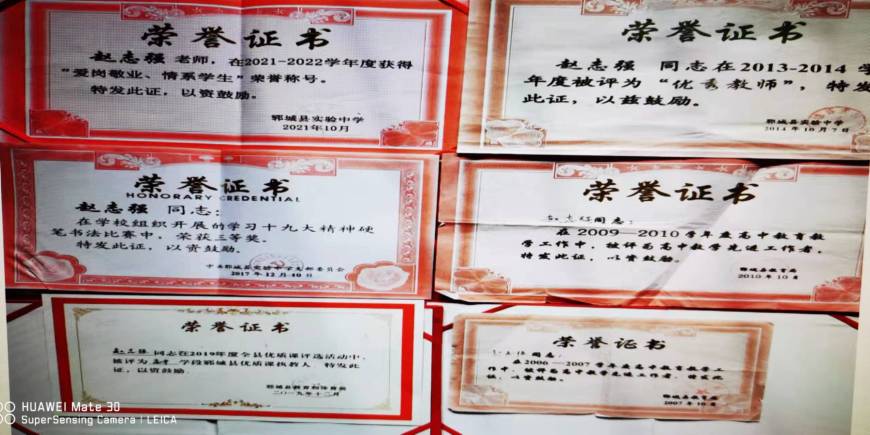 荣誉证书
赵志强 老师，在2021-2022学年度获得
“爱岗敬业、情系学生”荣誉称号。
特发此证，以资鼓励。
郸城县实验中学
2021年10月
荣誉证书
赵志强 同志在2013-2014 学
年度被评为“优秀教师”，特发
此证，以兹鼓励。
郸城县实验中学
2014年10月7日
荣誉证书
HONORARY CREDENTIAL
赵志强 同志：
在学校组织开展的学习十九大精神硬
笔书法比赛中，荣获三等奖。
特发此证，以资鼓励。
中共郸城县实验中学支部委员会
2017年12月
荣誉证书
同志：
在2009-2010学年度高中教育教
学工作中，被评为高中教学先进工作者，
特发此证，以资鼓励。
郸城县教育局
2010年10月
荣誉证书
同志在2019年度全县优质课评选活动中，
被评为 学段郸城县优质课执教人 特发此
证，以资鼓励
郸城县教育和体育局
二〇一九年十二月
荣誉证书
同志：
在2006-2007学年度高中教育教学工
作中，被评为高中教学先进工作者，特发此
证，以资鼓励。
郸城县教育局
2007年10月
HUAWEI Mate 30
SuperSensing Camera | LEICA